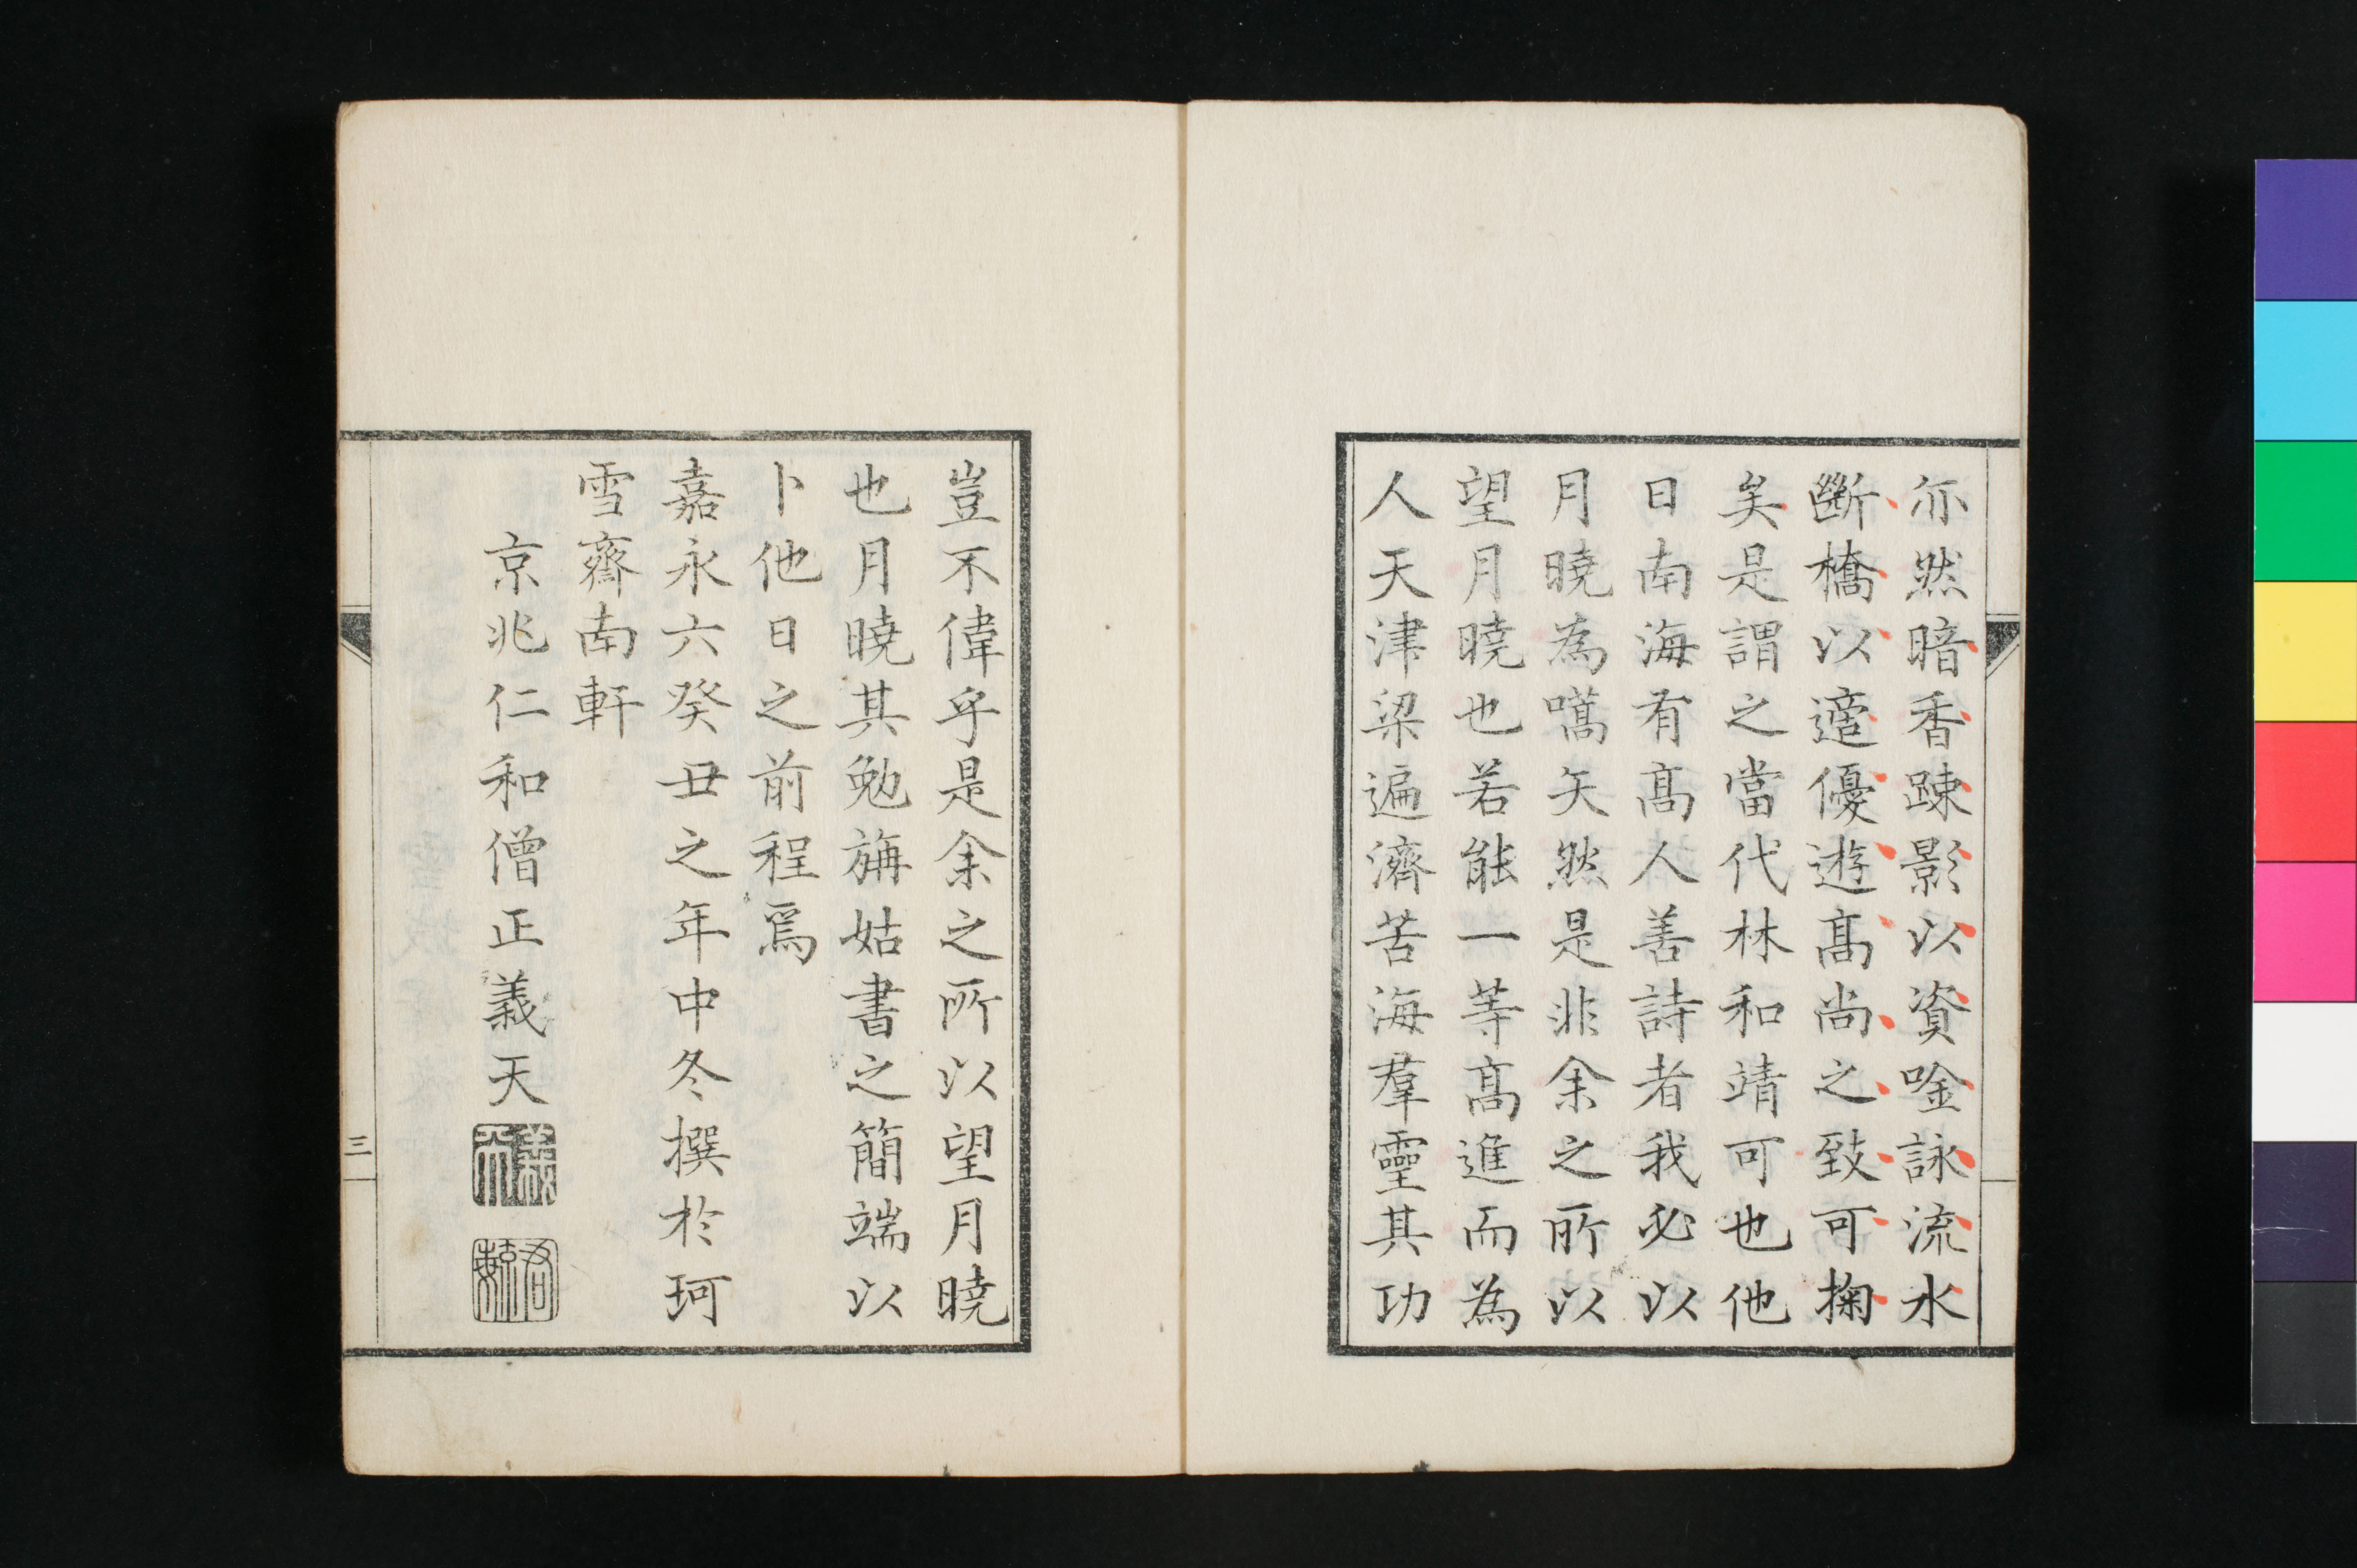 亦然暗香踈影以資唫詠流水
斷橋以遊優遊髙尚之致可掬
矣是謂之當代林和靖可也他
日南海有髙人善詩者我必以
月曉為嚆矢然是非余之所以
望月曉也若能一等髙進而為
人天津梁遍濟苦海羣靈其功
豈不偉乎是余之所以望月曉
也月曉其勉旃姑書之簡端以
卜他日之前程焉
嘉永六癸丑之年中冬撰於珂
雪齋南軒
京兆仁和僧正義天
三